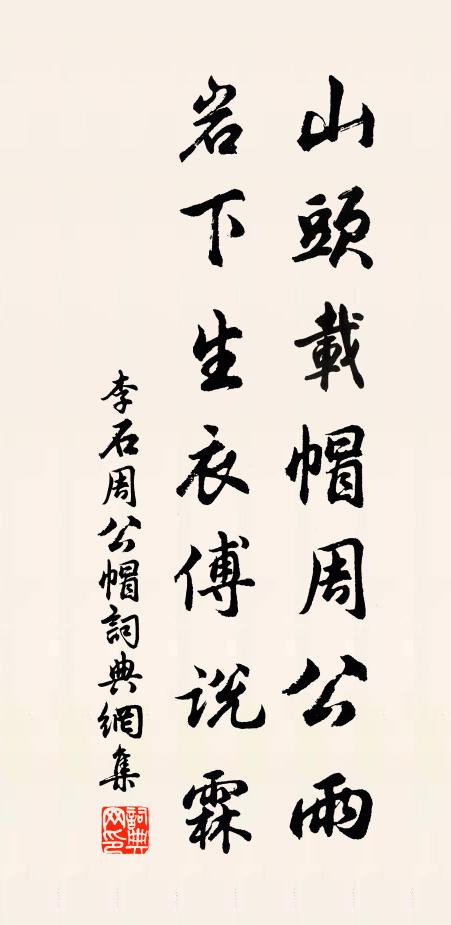 山頭載帽周公雨
岩下生衣傅説霖
李石周公帽詞典網集
詞典網印